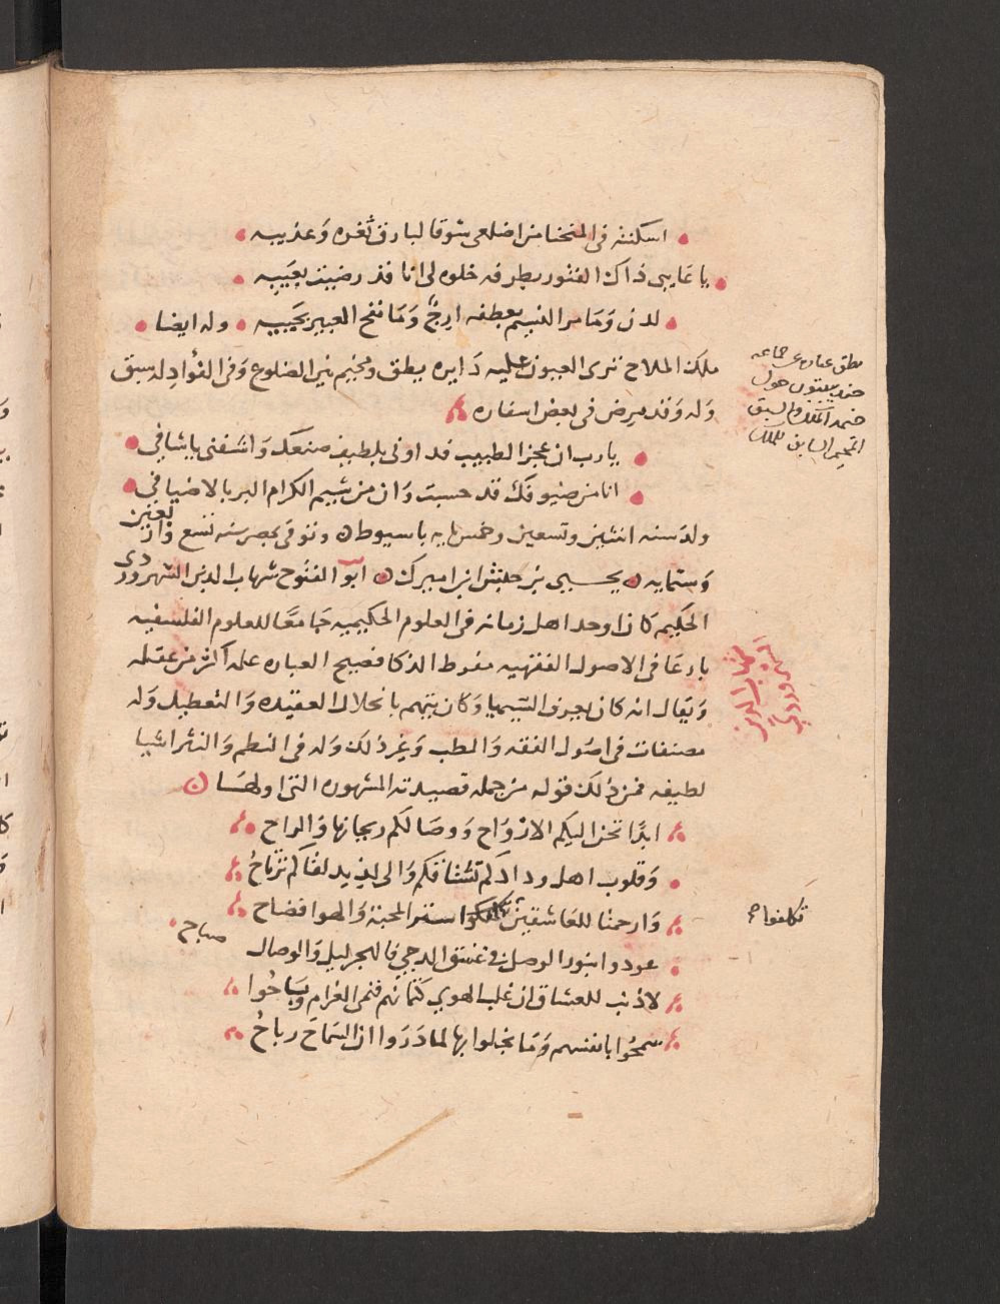 اسكنته في المنحنا من اضلعي شوقا لبارق ثغره وعذيبه
يا عايبي ذاك الفتور بطرفه خلوه لي انا قد رضيت بعيبه
لدن وما مر النسيم بعطفه ارج وما نفح العبير بجيبه وله ايضا
ملك الملاح ترى العيون عليه دايره يطق ومخيم بين الضلوع وفي الفؤاد له سبق
وله وقد مرض في بعض اسفاره
يارب ان عجز الطبيب فداوني بلطيف صنعك واشفني يا شافي
انا من ضيوفك قد حسبت وان من شيم الكرام البر بالاضيافي
ولد سنه اثنين وتسعين وخمس مايه باسيوط وتوفي بمصر سنه تسع واربعين
وستمايه يحيى بن حبش ابن اميرك ابو الفتوح شهاب الدين السهروردي
الحكيم كان اوحد اهل زمانه في العلوم الحكيميه جامعا للعلوم الفلسفيه
بارعا في الاصول الفقهيه مفرط الذكا فصيح العباره علمه اكثر من عقله
ويقال انه كان يعرف السيميا وكان يتهم بانحلال العقيده والتعطيل وله
مصنفات في اصول الفقه والطب وغير ذلك وله في النظم والنثر اشيا
لطيفه فمن ذلك قوله من جمله قصيدته المشهوره التي اولها
ابدا تحن اليكم الارواح ووصالكم ريحانها والراح
وقلوب اهل ودادكم تشتاقكم والى لذيذ لقاكم ترتاح
وارحمتا للعاشقين تكلفوا ستر المحبة والهوا فضاح
عودوا بنور الوصل في غسق الدجي فالهجر ليل والوصال صباح
لا ذنب للعشاق ان غلب الهوي كتمانهم فنمى الغرام وباحوا
سمحوا بانفسهم وما بخلوا بها لما دروا ان السماح رباح
يطق عباره عن جماعه
جند يبيتون حول
خيمه الملك والسبق
الخيم السابق للملك
شهاب الدين
السهروردي
تكلفوا صح